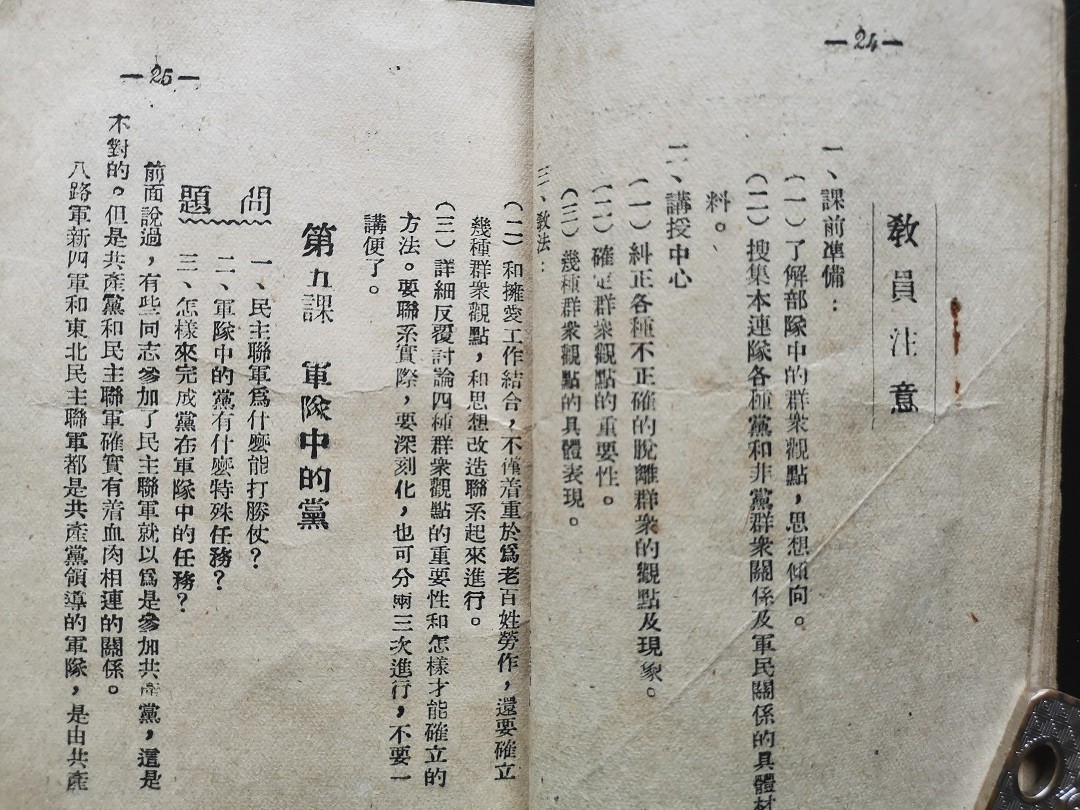 —24—
教員注意
一、課前準備：
（一）了解部隊中的群衆觀點，思想傾向。
（二）搜集本連隊各種黨和非黨群衆關係及軍民關係的具體材
料。
二、講授中心
（一）糾正各種不正確的脫離群衆的觀點及現象。
（二）確定群衆觀點的重要性。
（三）幾種群衆觀點的具體表現。
三、教法：
—25—
（二）和擁愛工作結合，不僅着重於爲老百姓勞作，還要確立
幾種群衆觀點，和思想改造聯系起來進行。
（三）詳細反覆討論四種群衆觀點的重要性和怎樣才能確立的
方法。要聯系實際，要深刻化，也可分兩三次進行，不要一
講便了。
第五課　軍隊中的黨
問題
一、民主聯軍爲什麼能打勝仗？
二、軍隊中的黨有什麼特殊任務？
三、怎樣來完成黨在軍隊中的任務？
前面說過，有些同志參加了民主聯軍就以爲是參加共產黨，這是
不對的。但是共產黨和民主聯軍確實有着血肉相連的關係。
八路軍新四軍和東北民主聯軍都是共產黨領導的軍隊，是由共產